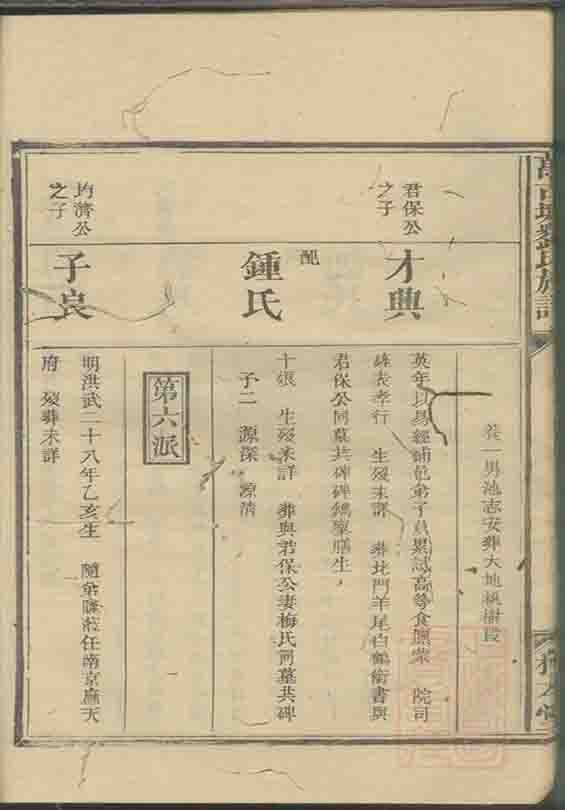 葬一男池志安葬大地桃樹段
君保公
之子
才典
英年以易經補邑弟子員累試高等食廩業 院司
錦表孝行 生歿未詳 葬北門羊尾白鶴銜書與
君保公同墓共碑碑鐫廩膳生
配
鍾氏
十娘 生歿未詳 葬與君保公妻梅氏同墓共碑
子二 源深 源清
第六派
均濟公
之子
子良
明洪武二十八年乙亥生 隨弟 任南京應天
府 歿葬未詳